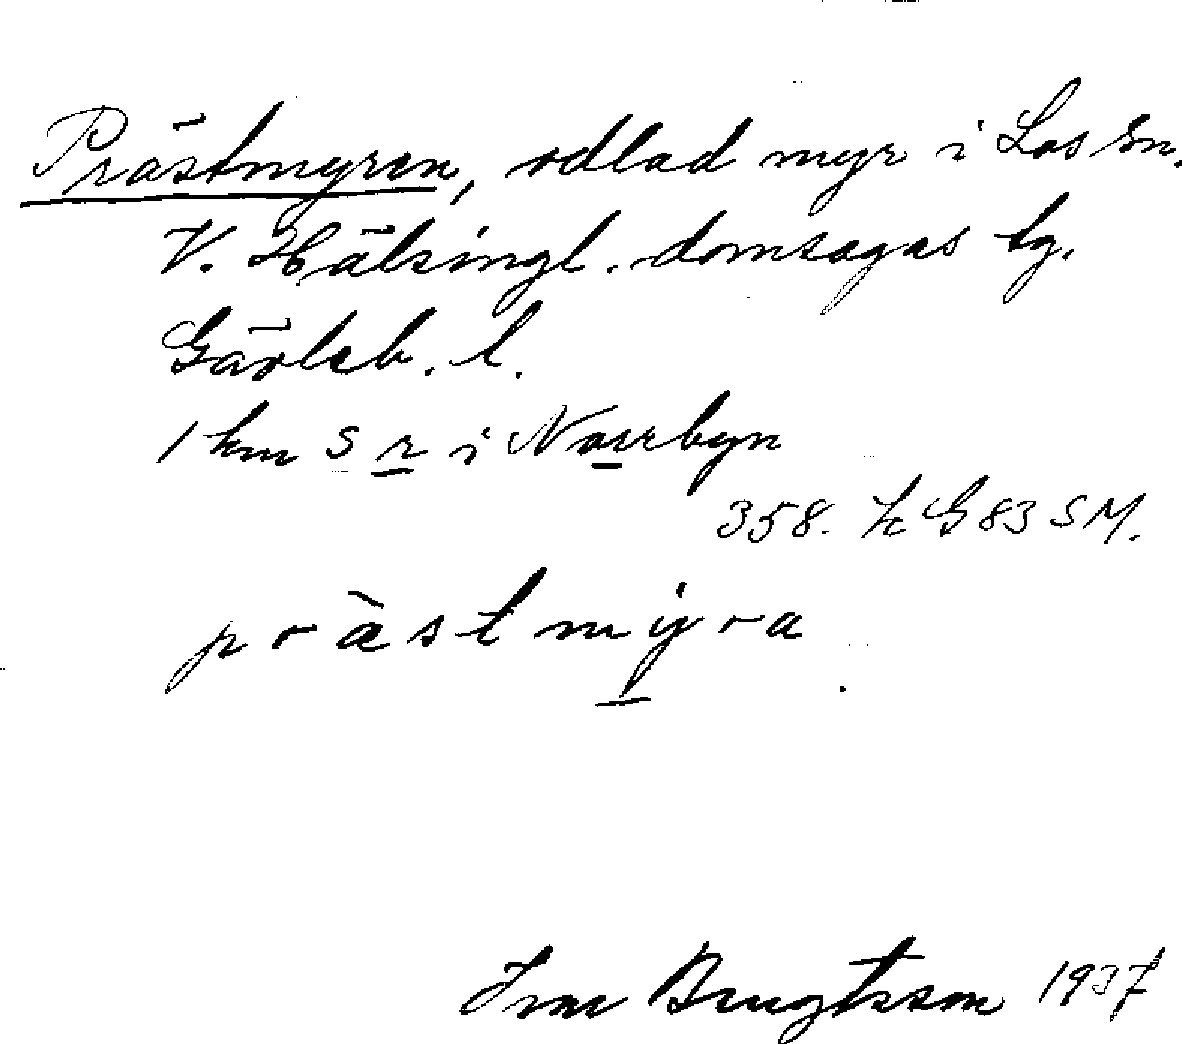 Prästmyren, odlad myr i Los sn.
V. Hälsingl. domsagas tg.
Gävleb. l.
1 km S r i Norrbyn
358. G 83 SM.
pràstmyra
Ivar Bengtsson 1937